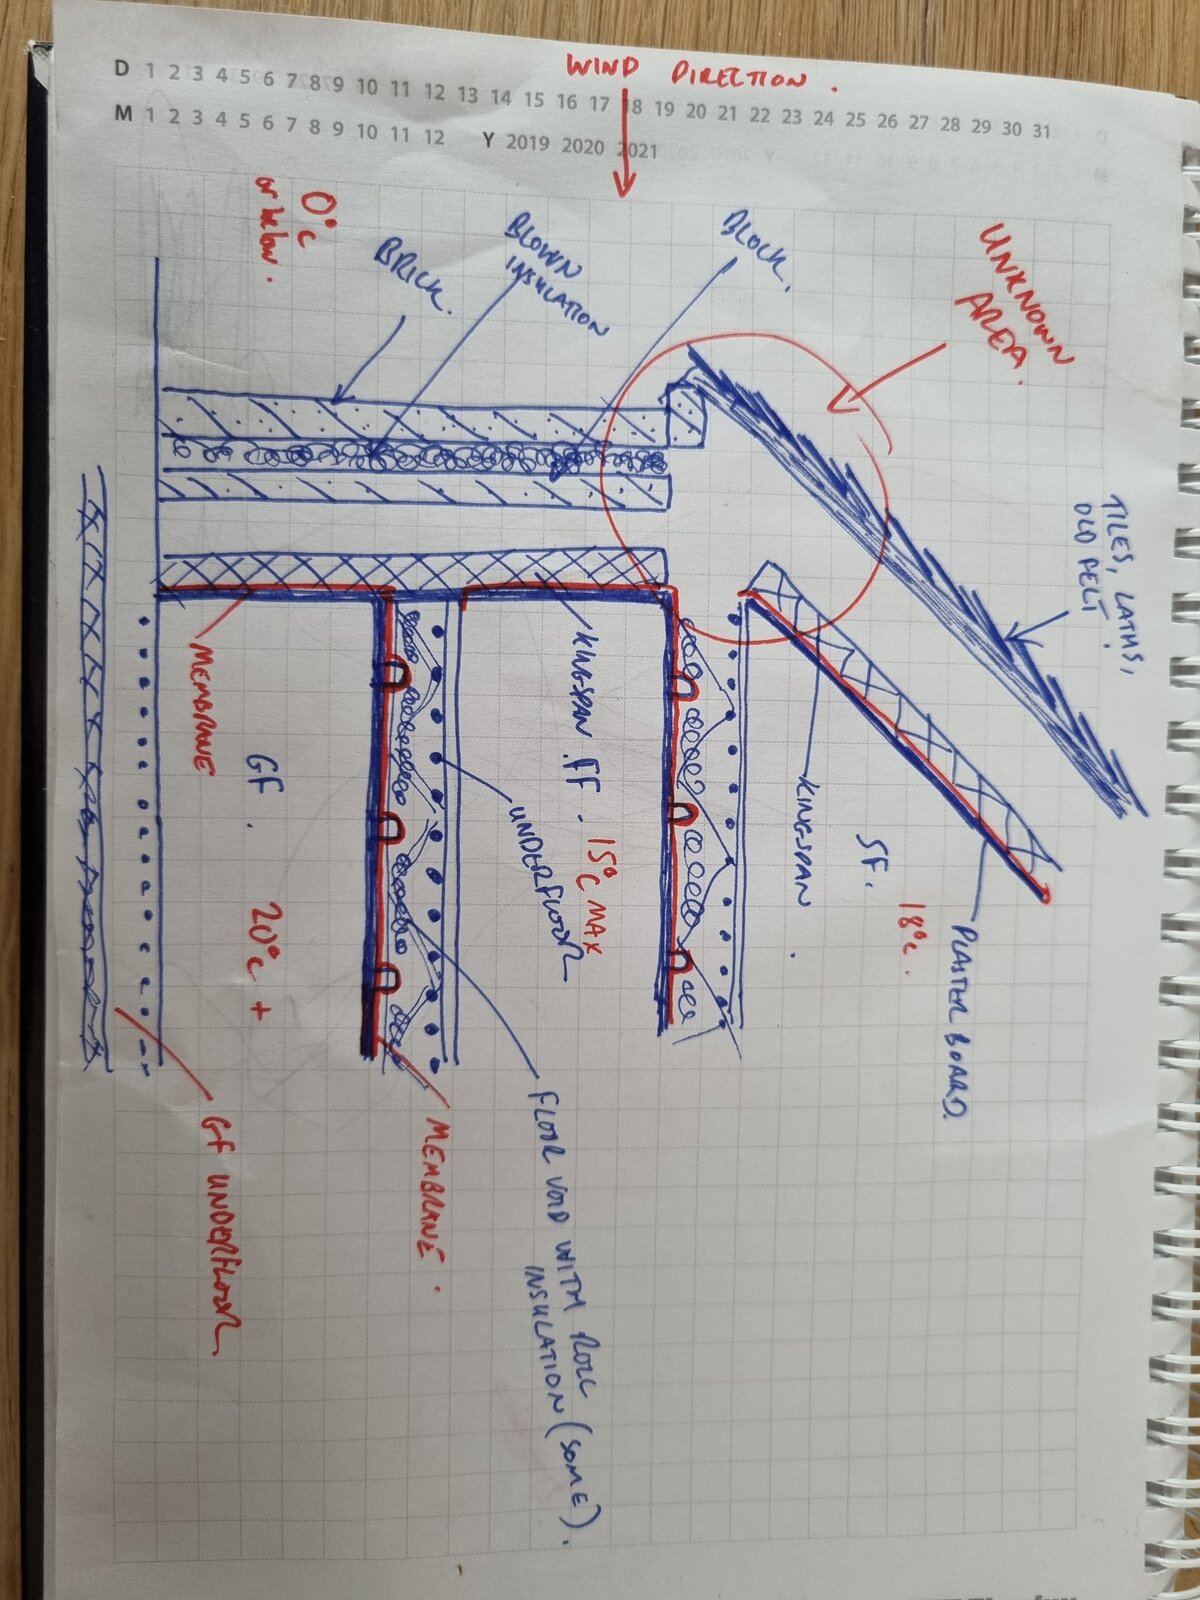 D 1 2 3 4 5 6 7 8 9 10 11 12 13 14 15 16 17 18 19 20 21 22 23 24 25 26 27 28 29 30 31
M 1 2 3 4 5 6 7 8 9 10 11 12 Y 2019 2020 2021
WIND DIRECTION.
UNKNOWN
AREA.
BLOCK.
BLOWN
INSULATION
BRICK.
0°C
or below.
TILES, LATHS,
OLD FELT
PLASTER BOARD.
SF.
18°C.
KINGSPAN
KINGSPAN FF. 15°C MAX
UNDERFLOOR
FLOOR VOID WITH ROLL
INSULATION (SOME).
MEMBRANE.
MEMBRANE
GF. 20°C +
GF UNDERFLOOR